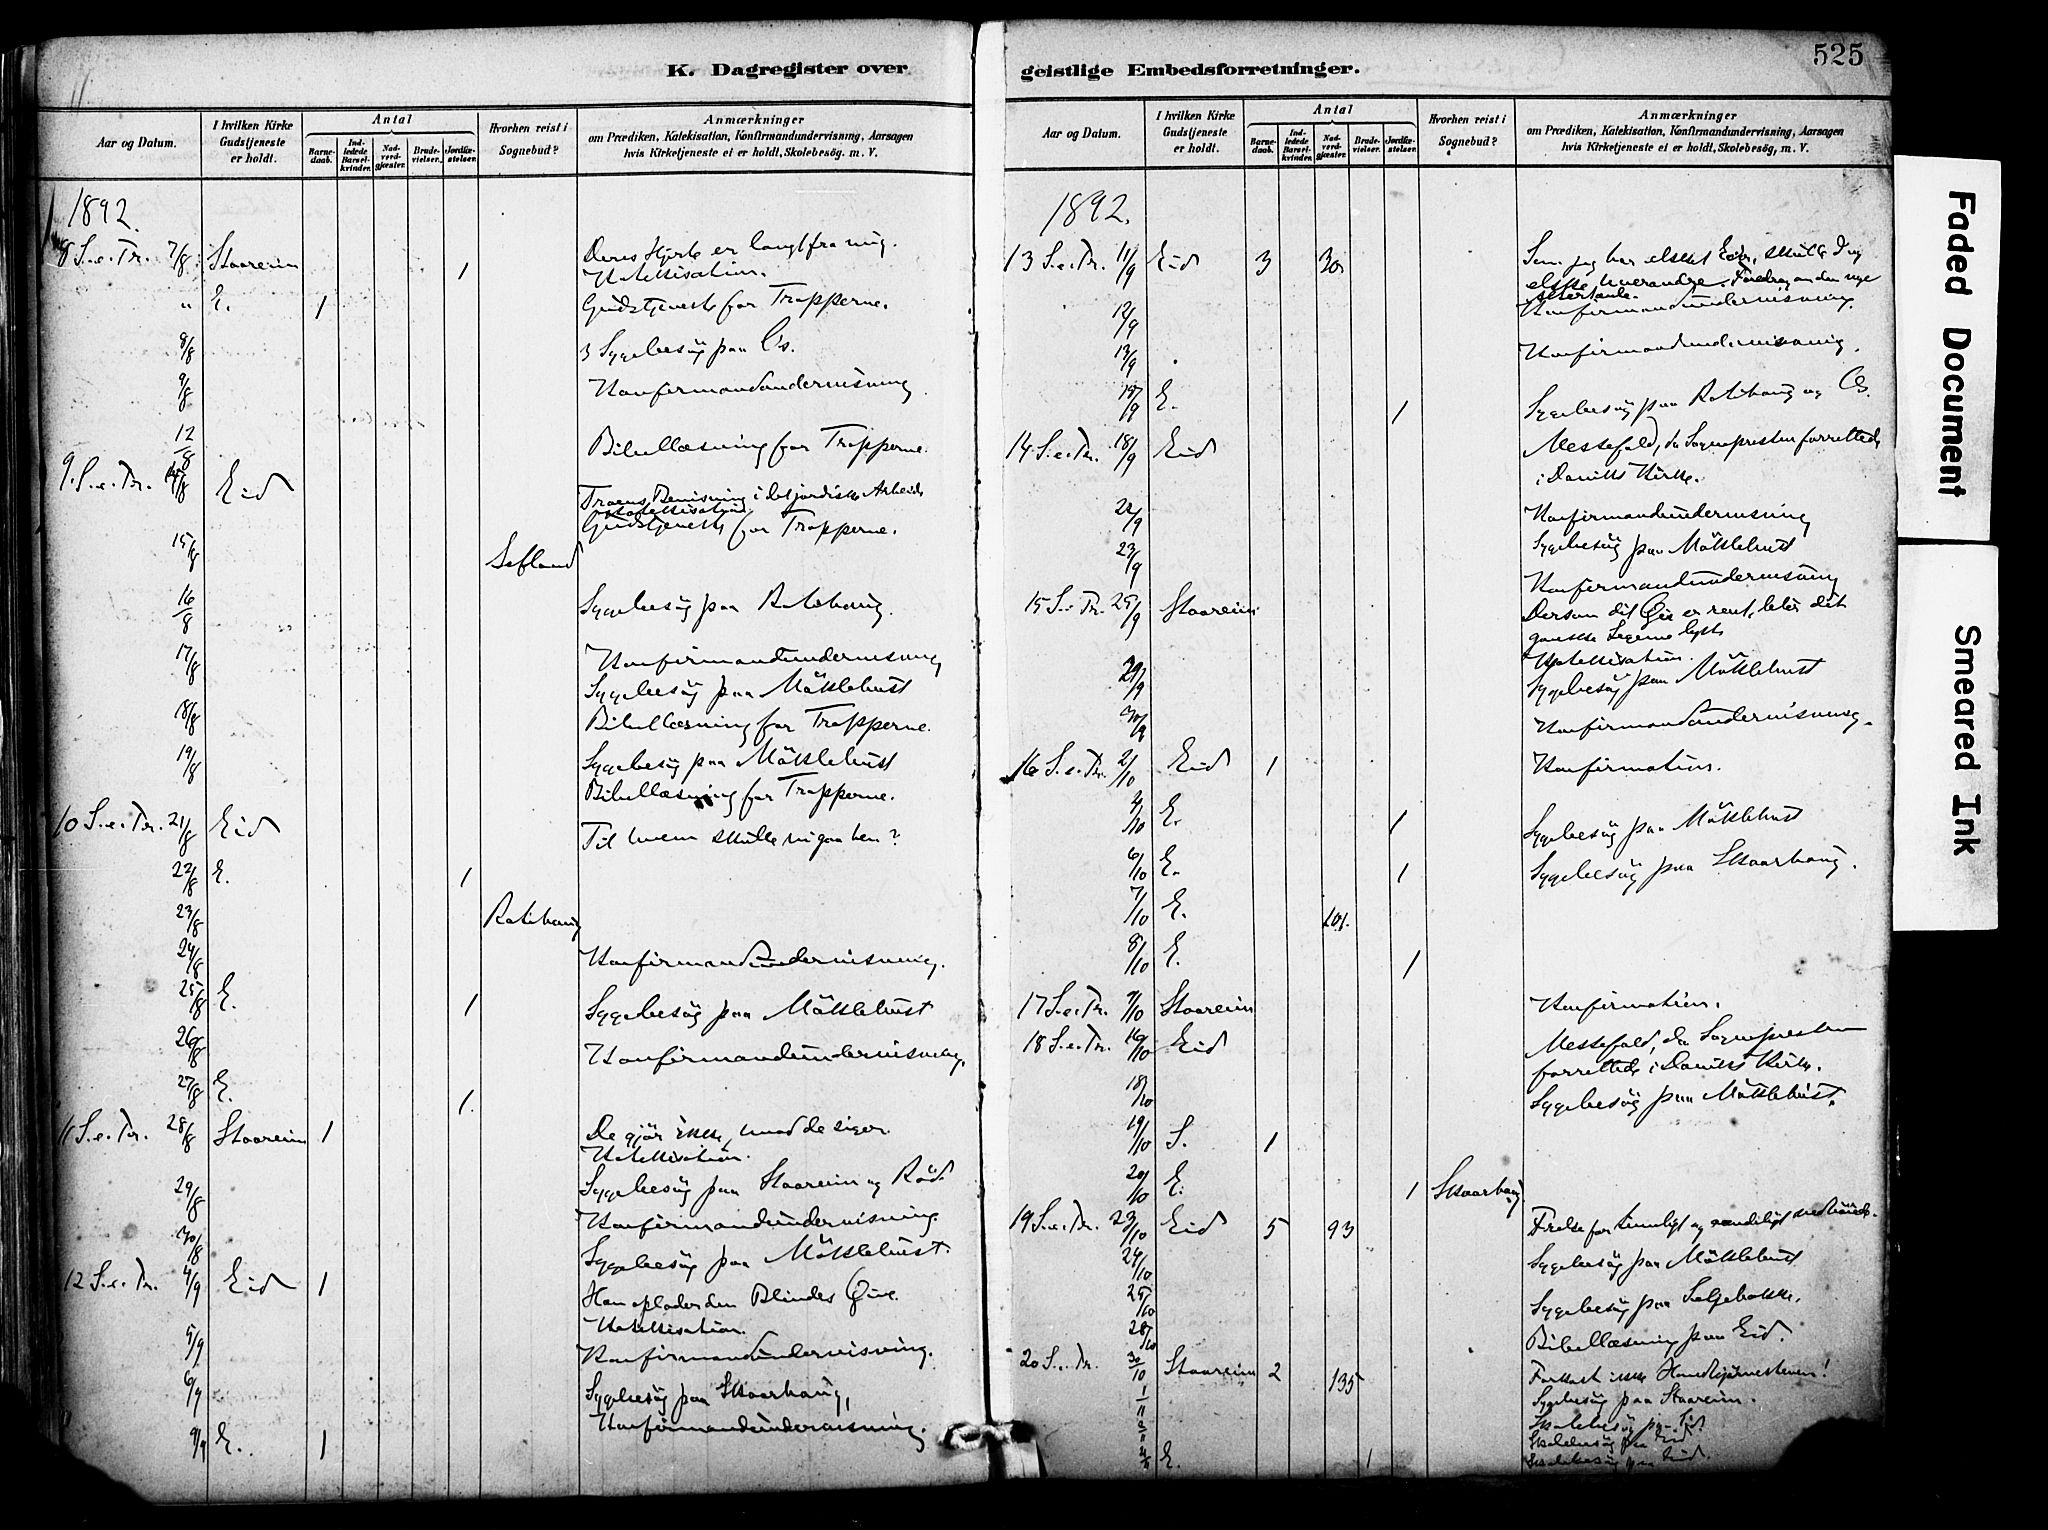 K. Dagregister over
Aar og Datum.
I hvilken Kirke
Gudstjeneste
er holdt.
Antal
Barne-
daab.
Ind-
ledede
Barsel-
kvinder.
Nad-
verd-
gjæster.
Brude-
vielser.
Jordfæ-
stelser.
Hvorhen reist i
Sognebud?
Anmærkninger
om Prædiken, Katekisation, Konfirmandundervisning, Aarsagen
hvis Kirketjeneste ei er holdt, Skolebesög, m. V.
1892.
8 S.e.Tr. 7/8 Staareim 1 Deres Hjerte er langt fra mig.
Katekisation.
" E. 1 Gudstjeneste for Tropperne.
8/8 3 Sygebesög paa Os.
9/8 Konfirmandundervisning
12/8 Bibellæsning for Tropperne.
9. S.e.Tr. 14/8 Eid Troens Bevisning i det jordiske Arbeide
Katekisation.
Gudstjeneste for Tropperne.
15/8 Lefland
16/8 Sygebesög paa Rotehaug.
17/8 Konfirmandundervisning
Sygebesög paa Möklebust
18/8 Bibellæsning for Tropperne.
19/8 Sygebesög paa Möklebust
Bibellæsning for Tropperne.
10 S.e.Tr. 21/8 Eid Til hvem skulle vi gaa hen?
22/8 E. 1
23/8 Rotehaug
24/8 Konfirmandundervisning.
25/8 E. 1 Sygebesög paa Möklebust
26/8 Konfirmandundervisning.
27/8 E. 1.
11 S.e.Tr. 28/8 Staareim 1 De gjör ikke, hvad de siger.
Katekisation.
29/8 Sygebesög paa Staareim og Röd.
Konfirmandundervisning.
30/8 Sygebesög paa Möklebust.
12 S.e.Tr. 4/9 Eid 1 Han oplader den Blindes Øine.
Katekisation.
5/9 Konfirmandundervisning.
6/9 Sygebesög paa Skaarhaug,
Konfirmandundervisning.
9/9 E. 1
geistlige Embedsforretninger.
525
Aar og Datum.
I hvilken Kirke
Gudstjeneste
er holdt.
Antal
Barne-
daab.
Ind-
ledede
Barsel-
kvinder.
Nad-
verd-
gjæster.
Brude-
vielser.
Jordfæ-
stelser.
Hvorhen reist i
Sognebud?
Anmærkninger
om Prædiken, Katekisation, Konfirmandundervisning, Aarsagen
hvis Kirketjeneste ei er holdt, Skolebesög, m. V.
1892.
13 S.e.Tr. 11/9 Eid 3 30 Som jeg har elsket Eder, skulle I og
elske hverandre. Foredrag om den nye
12/9 Konfirmandundervisning.
13/9 Konfirmandundervisning.
15/9 E. 1 Sygebesög paa Rotehaug og Os.
14 S.e.Tr. 18/9 Eid Messefald, da Sognepresten forrettede
i Daviks Kirke.
22/9 Konfirmandundervisning
23/9 Sygebesög paa Möklebust
Konfirmandundervisning
15 S.e.Tr. 25/9 Staareim Dersom dit Øie er rent, blir dit
ganske Legeme lyst.
Katekisation.
29/9 Sygebesög paa Möklebust
30/9 Konfirmandundervisning.
16 S.e.Tr. 2/10 Eid 1 Konfirmation.
4/10 E. 1 Sygebesög paa Möklebust
6/10 E. 1 Sygebesög paa Skaarhaug.
7/10 E. 101.
8/10 E. 1
17 S.e.Tr. 9/10 Staareim Konfirmation.
18 S.e.Tr. 16/10 Eid Messefald, da Sognepresten
forrettede i Daviks Kirke.
18/10 Sygebesög paa Möklebust.
19/10 S. 1
20/10 E. 1 Skaarhaug
19 S.e.Tr. 23/10 Eid 5 93 Frelse for timeligt og aandeligt
24/10 Sygebesög paa Möklebust
25/10 Sygebesög paa Seljebakke.
28/10 Bibellæsning paa Eid.
20 S.e.Tr. 30/10 Staareim 2 135 Forkast ikke Hovedhjörnestenen!
1/11 Sygebesög paa Staareim.
2/11 Skolebesög paa Eid.
Skolebesög paa Eid.
4/11 E. 1 Skolebesög paa Eid.
Faded Document
Smeared Ink